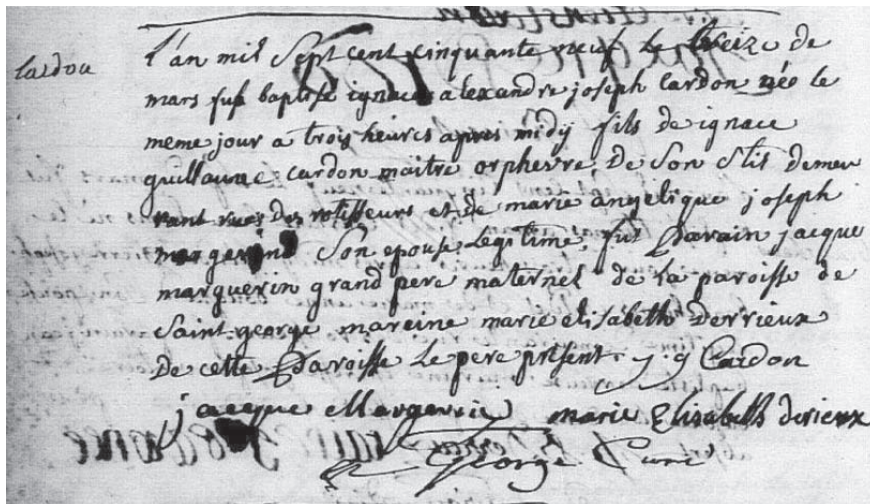 Cardon
L'an mil Sept cent cinquante neuf Le treize de
mars fus baptise ignace alexandre joseph Cardon née le
meme jour a trois heures apres midy fils de ignace
guillaume Cardon maitre orphevre de Son Stil demeu
rant rue des rotisseurs et de marie angelique joseph
margerin Son epouse Legitime, fut Parain jacque
marguerin grand pere maternel de la paroisse de
Saint george mareine marie elisabeth Derrieux
De cette Paroisse Le pere présent. j. g Cardon
jacque Margerin marie Elisabeth derieux
George Curé